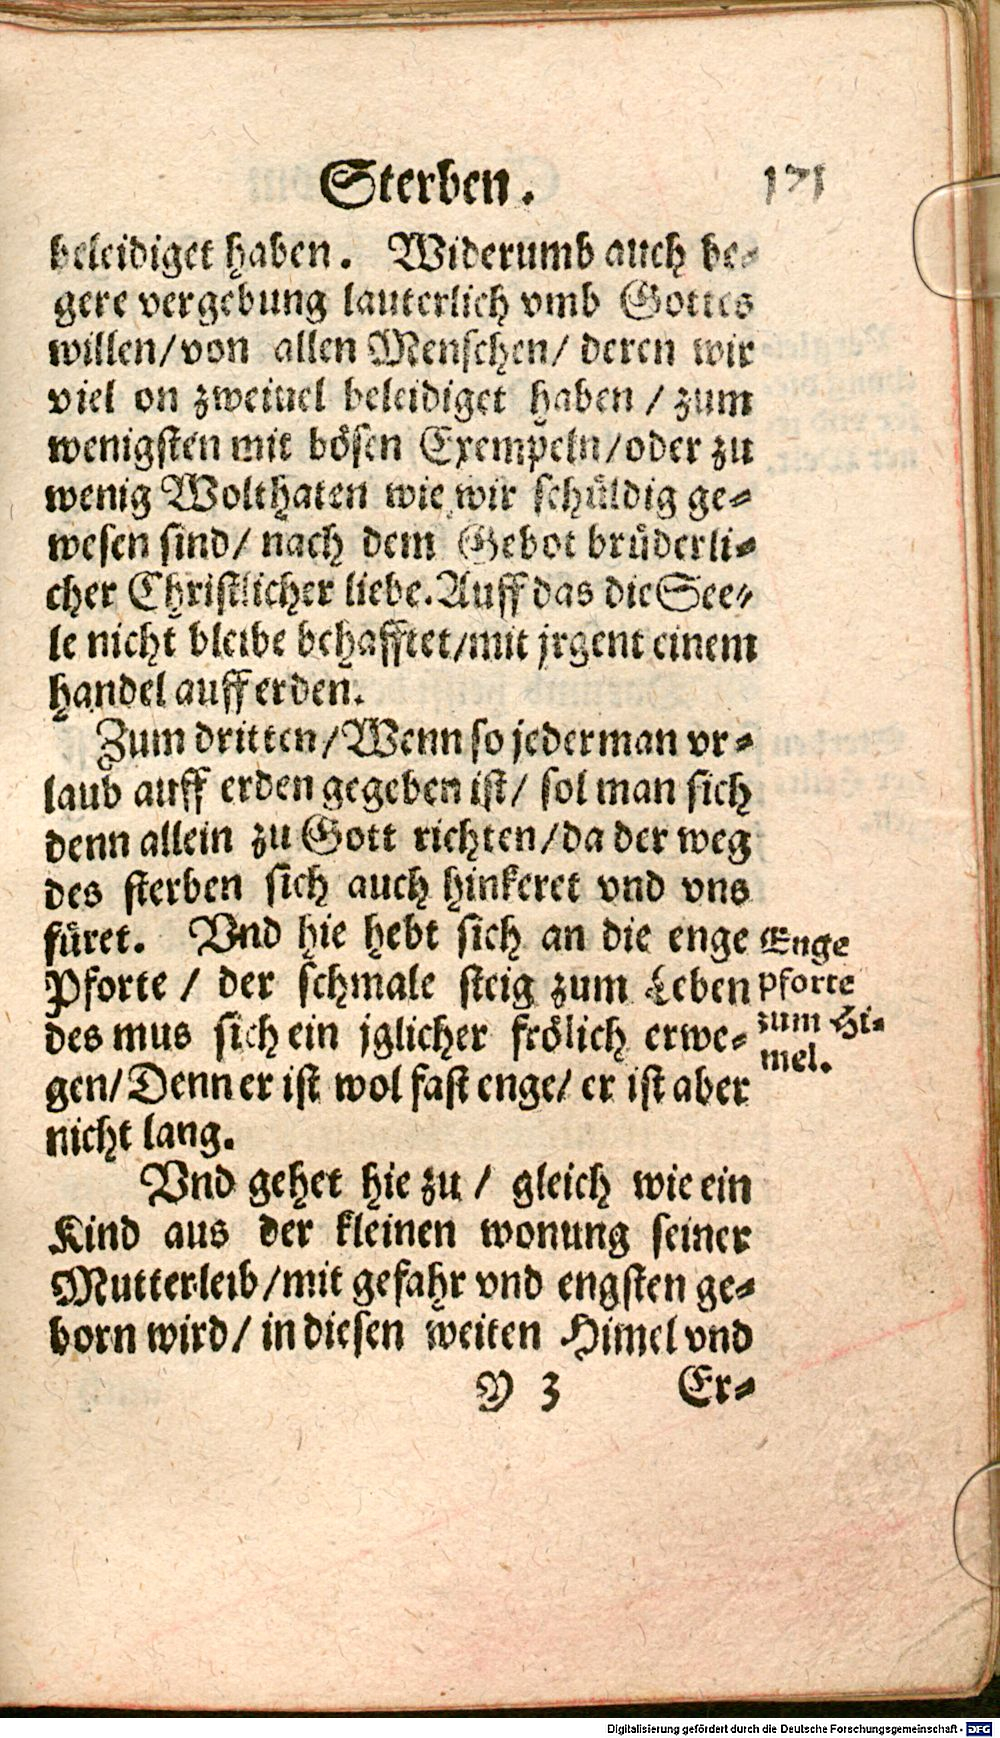 Sterben. 171
beleidiget haben. Widerumb auch be-
gere vergebung lauterlich vmb Gottes
willen/von allen Menschen/ deren wir
viel on zweiuel beleidiget haben / zum
wenigsten mit bösen Exempeln/oder zu
wenig Wolthaten wie wir schüldig ge-
wesen sind/ nach dem Gebot brüderli-
cher Christlicher liebe. Auff das die See-
le nicht bleibe behafftet/mit jrgent einem
handel auff erden.
Zum dritten/Wenn so jederman vr-
laub auff erden gegeben ist/ sol man sich
denn allein zu Gott richten/da der weg
des sterben sich auch hinkeret vnd vns
füret. Vnd hie hebt sich an die enge
Pforte / der schmale steig zum Leben
des mus sich ein jglicher frölich erwe-
gen/Denn er ist wol fast enge/ er ist aber
nicht lang.
Enge
pforte
zum Hi-
mel.
Vnd gehet hie zu / gleich wie ein
Kind aus der kleinen wonung seiner
Mutterleib/mit gefahr vnd engsten ge-
born wird/ in diesen weiten Himel vnd
Y 3 Er-
Digitalisierung gefördert durch die Deutsche Forschungsgemeinschaft - DFG